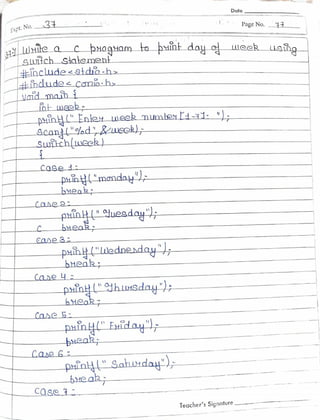 Date
Expt. No. 37
Page No. 37
Write a C program to print day of week using
switch statement
#include<stdio.h>
#include<conio.h>
void main {
int week;
printf(" Enter week number[1-7]: ");
scanf("%d", &week);
switch(week)
{
case 1:
printf("monday");
break;
case 2:
printf("Tuesday");
c break;
case 3:
printf("Wednesday");
break;
case 4:
printf("Thursday");
break;
case 5:
printf("Friday");
break;
case 6:
printf(" Saturday");
break;
case 7:
Teacher's Signature